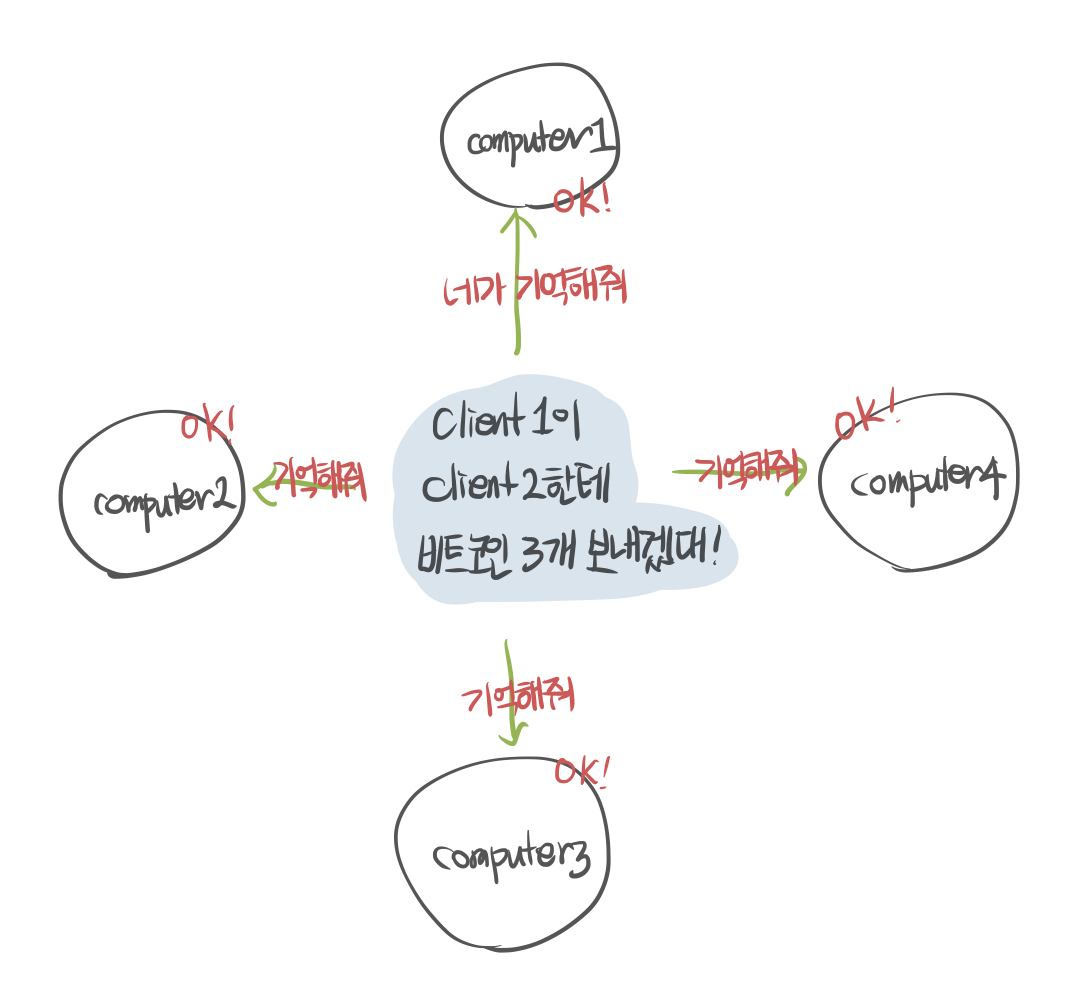 computer1
OK!
네가 기억해줘
OK!
computer2
기억해줘
Client 1이
Client 2한테
비트코인 3개 보내겠대!
기억해줘
OK!
computer4
기억해줘
OK!
computer3